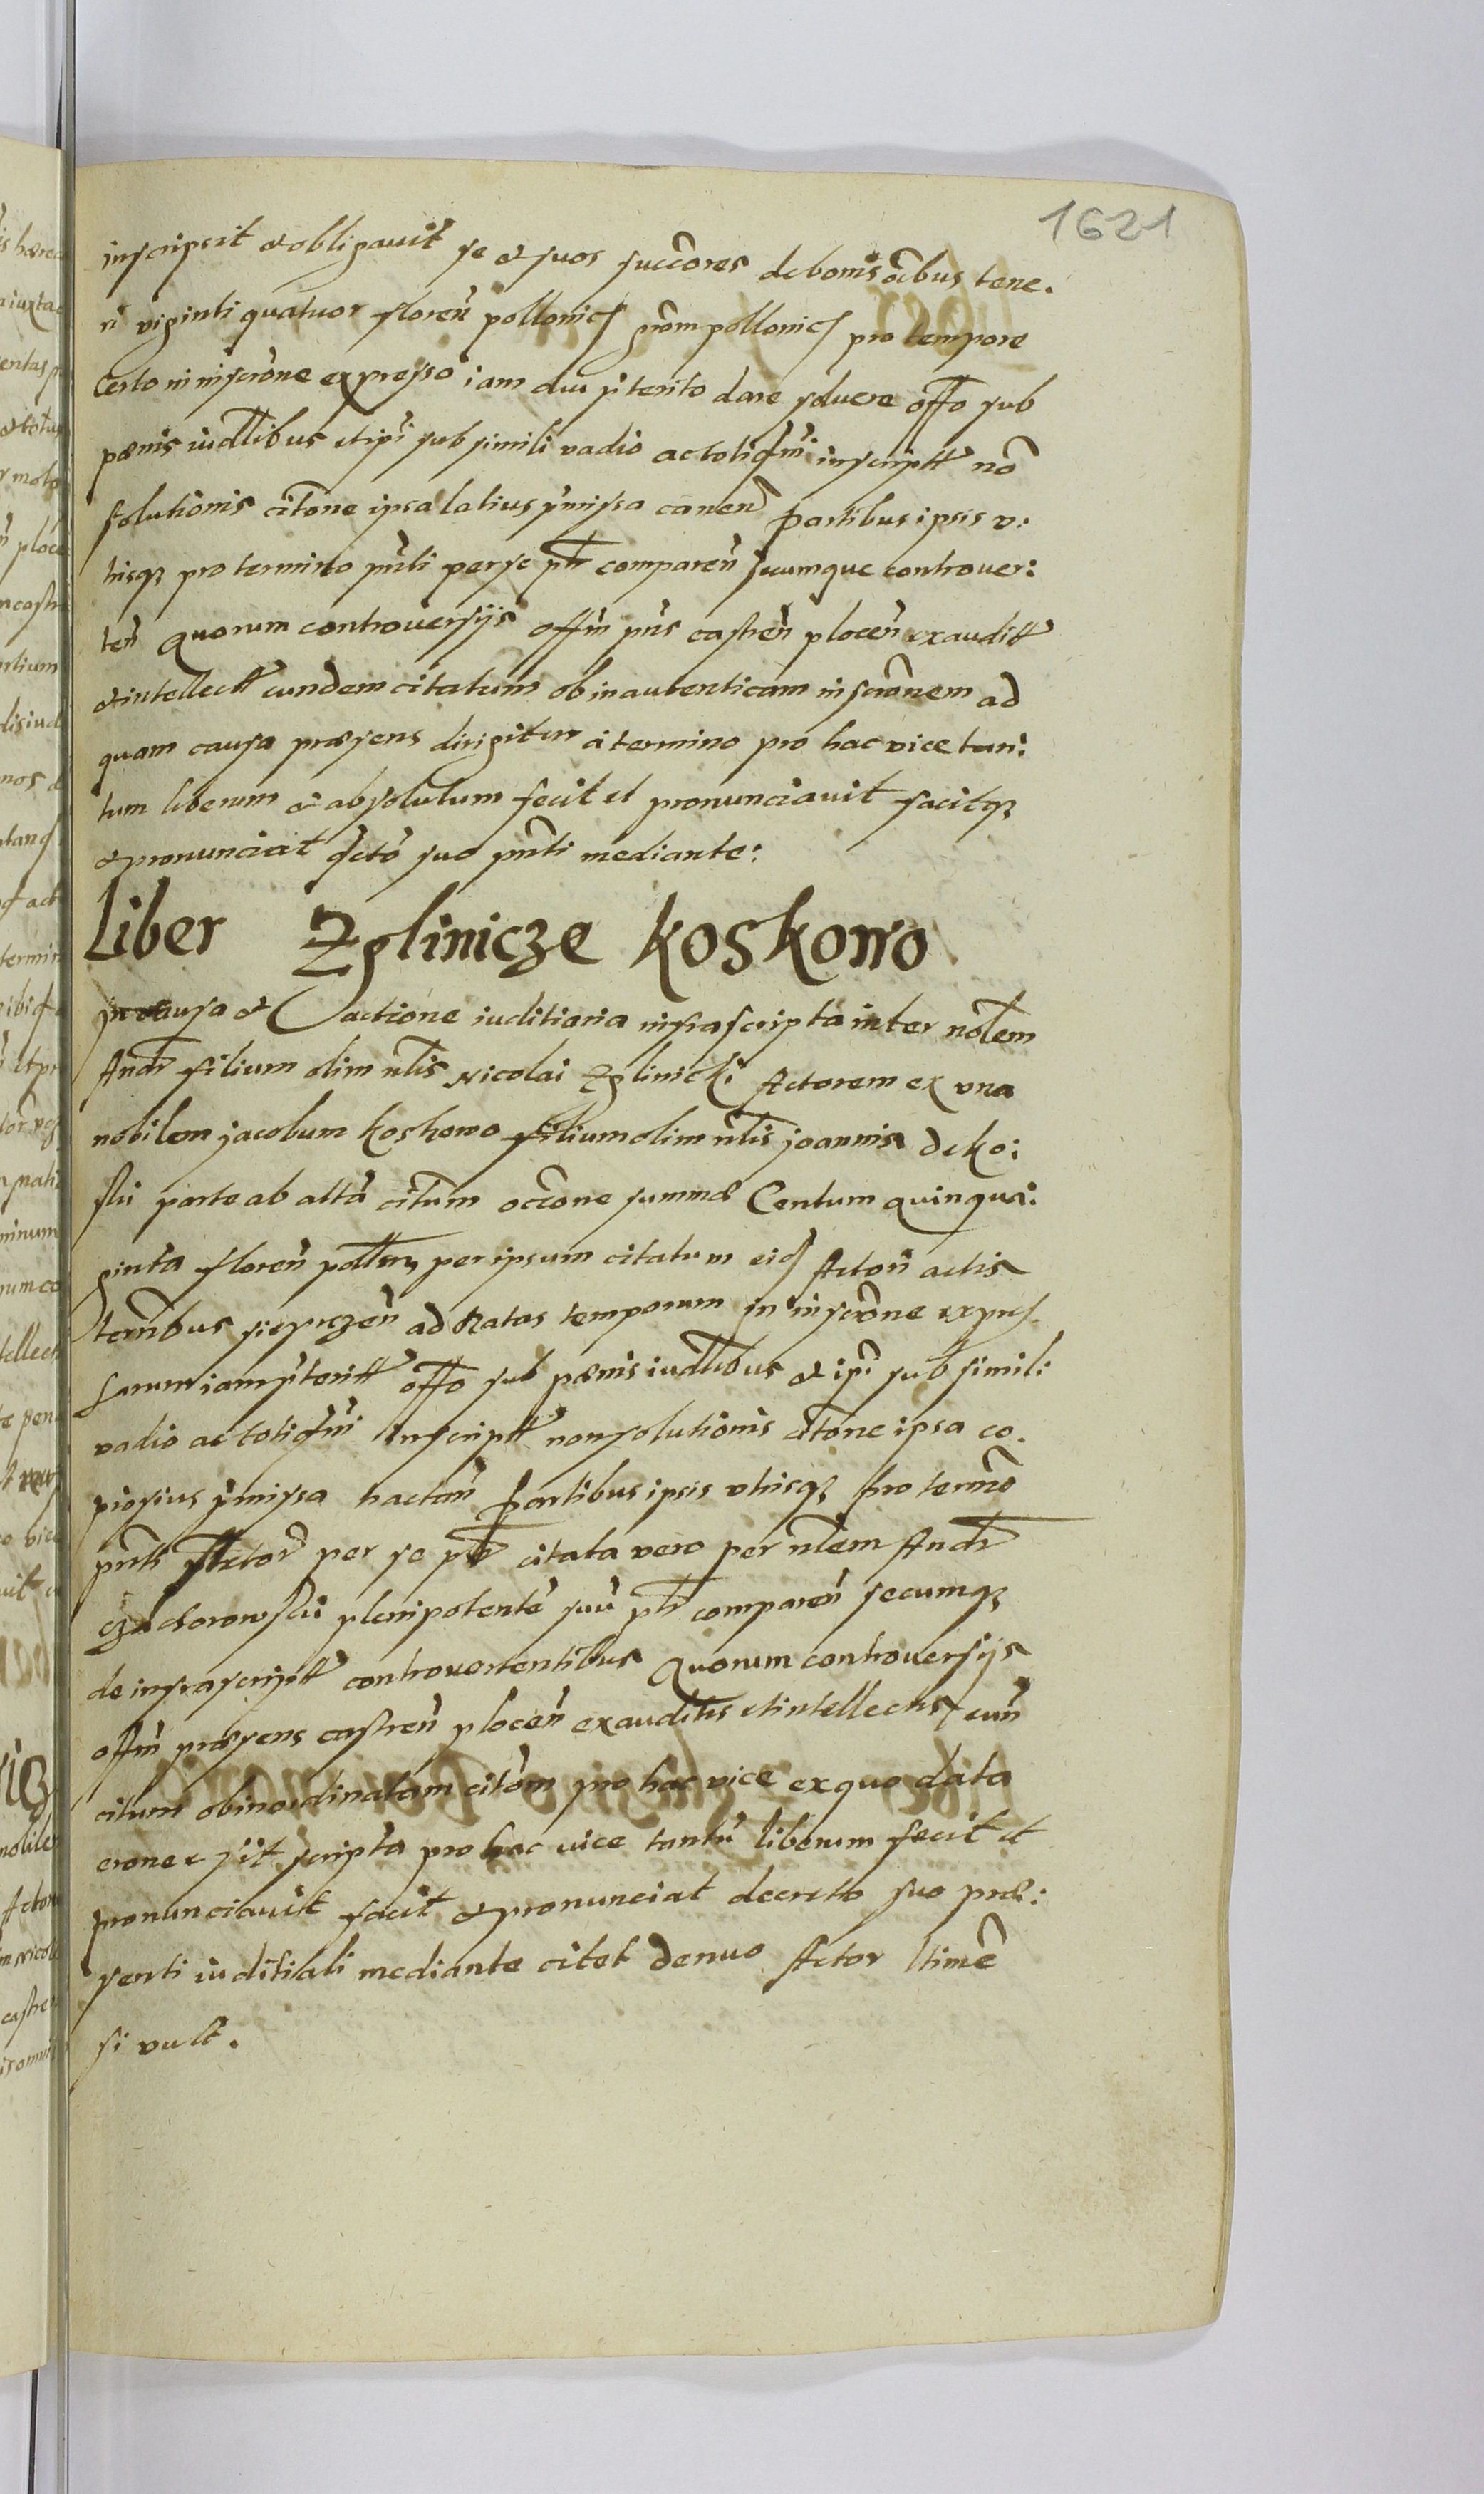 1621
inscripsit et obligavit se et suos succores de bonis oibus tene.
ri viginti quatuor floren pollonic nom pollonic pro tempore
Certo in inscrone expresso iam diu pterito dare soluere offo sub
pœnis iudlibus et ipi sub simili vadio ac totiqm inscriptt no
solutionis citone ipsa latius pmissa canen partibus ipsis v:
trisq pro termino pnti per se ptr comparen secumque controuer:
ten Quorum controuersijs offm pns castren plocen exauditt
et intellectt eundem citatum ob inautenticam inscronem ad
quam causa præsens dirigitur a termino pro hac vice tan:
tum liberum et absolutum fecit et pronunciavit facitq
et pronunciat dcto suo pnti mediante:
Liber Zglinicze Koskowo
In causa et actione iuditiaria infrascripta inter noblem
Andr filium olim nlis Nicolai Zglinicki Actorem ex vna
nobilem jacobum Koskowo filium olim nlis joannis de Ko:
skii parte ab alta citum occone summæ Centum quinqua:
ginta floren polln per ipsum citatum eid Actori actis
terribus sieprczen ad Ratas temporum in inscrone expres
sarum iam pteritt offo sub pœnis iudlibus et ipi sub simili
vadio ac totiqm Inscriptt non solutionis citone ipsa co.
piosius pmissa hacten Partibus ipsis vtrisq Pro termo
pnti Actor per se ptr citata vero per nlem Andr
Czachorowskii plenipotente suu ptr comparen secumq
de infrascriptt controuertentibus Quorum controuersijs
offm præsens castren plocen exauditis et intellectis eun
citum ob inordinatam citom pro hac vice ex quo data
erronee sit scripta pro hac vice tantu liberum fecit et
pronunciavit facit et pronunciat decreto suo præ:
senti iuditiali mediante citet denuo Actor ltime
si vult.